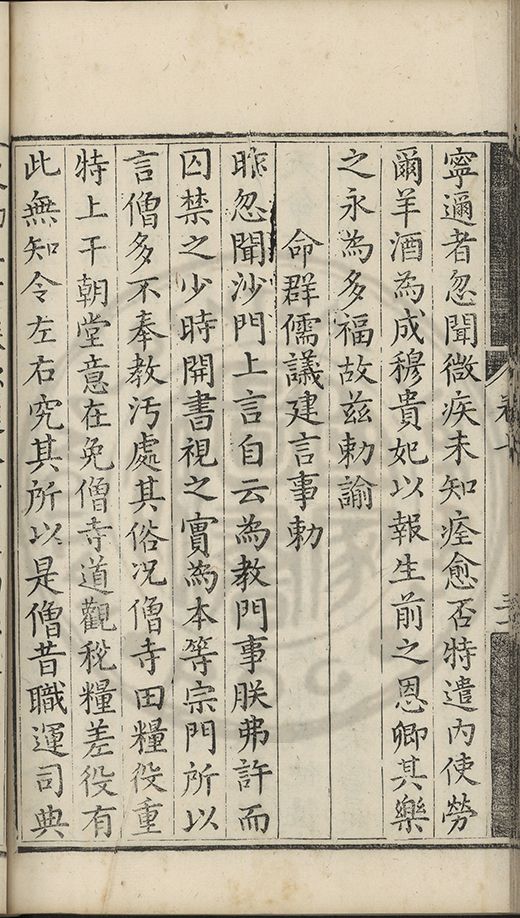 寧邇者忽聞微疾未知痊愈否特遣內使勞
爾羊酒為成穆貴妃以報生前之恩卿其樂
之永為多福故茲勅諭
命群儒議建言事勅
昨忽聞沙門上言自云為教門事朕弗許而
囚禁之少時開書視之實為本等宗門所以
言僧多不奉教污處其俗况僧寺田糧役重
特上干朝堂意在免僧寺道觀稅糧差役有
此無知令左右究其所以是僧昔職運司典